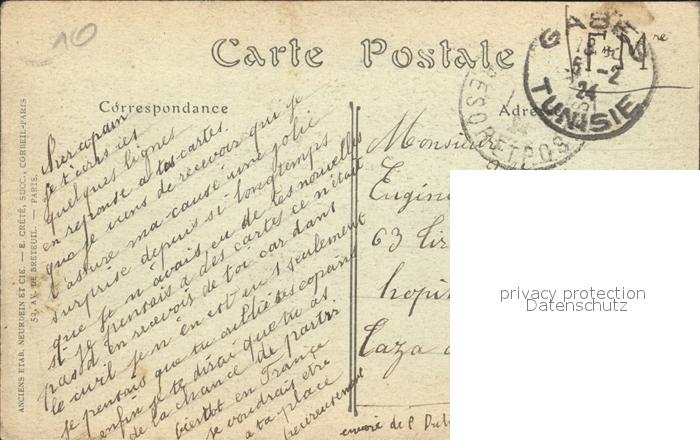 10
Carte Postale
F M
re
GABES
5 -2
24
TUNISIE
Correspondance
Adre
ANCIENS ETAB. NEURDEIN ET CIE. — E. CRÉTÉ, SUCC., CORBEIL-PARIS
52, AV. DE BRETEUIL. — PARIS.
cher copain
Je t'écris ici
quelques lignes
en reponse a tas cartes.
que je viens de recevoir qui je
t'assure ma causé une jolie
surprise depuis si longtemps
que je n'avais eu de tes nouvelles
si je pensais a des cartes ce n'était
pas d'en recevoir de toi car dans
le civil je n'en est eu 1 seulement
je pensais que tu oublié tes copains
enfin je te dirai que tu as
de la chance de partir
bientot en France
je voudrais etre
a ta place
heureusement
Monsieur
Eugène
63
hopi
Caza
envoie de P. Du
privacy protection
Datenschutz